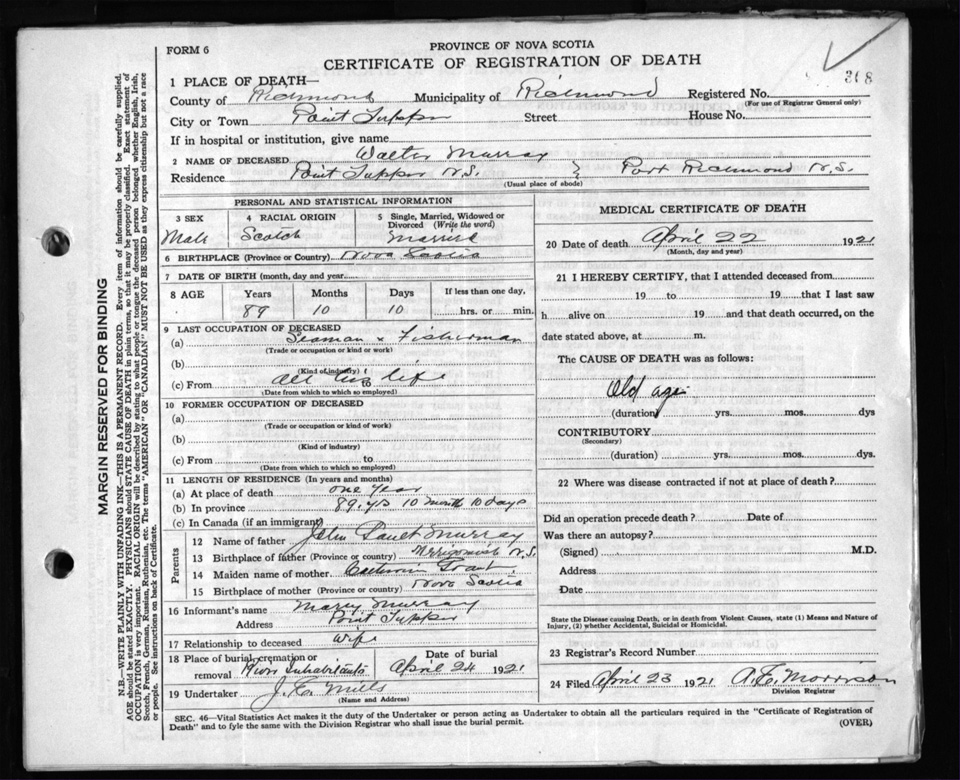 FORM 6
PROVINCE OF NOVA SCOTIA
CERTIFICATE OF REGISTRATION OF DEATH
318
1 PLACE OF DEATH—
County of Richmond Municipality of Richmond Registered No.
(For use of Registrar General only)
City or Town Point Tupper Street House No.
If in hospital or institution, give name
2 NAME OF DECEASED Walter Murray
Residence Point Tupper N.S. } Port Richmond N.S.
(Usual place of abode)
PERSONAL AND STATISTICAL INFORMATION
3 SEX 4 RACIAL ORIGIN 5 Single, Married, Widowed or Divorced (Write the word)
Male Scotch Married
6 BIRTHPLACE (Province or Country) Nova Scotia
7 DATE OF BIRTH (month, day and year
8 AGE Years Months Days If less than one day,
89 10 10 hrs. or min.
9 LAST OCCUPATION OF DECEASED
(a) Seaman & Fisherman
(Trade or occupation or kind or work)
(b)
(Kind of industry)
(c) From all his life
(Date from which to which so employed)
10 FORMER OCCUPATION OF DECEASED
(a)
(Trade or occupation or kind of work)
(b)
(Kind of industry)
(c) From to
(Date from which to which so employed)
11 LENGTH OF RESIDENCE (In years and months)
(a) At place of death one year
(b) In province 89 yrs 10 month 10 days
(c) In Canada (if an immigrant)
Parents
12 Name of father John Murray
13 Birthplace of father (Province or country) N.S.
14 Maiden name of mother Grant
15 Birthplace of mother (Province or country) Nova Scotia
16 Informant's name Mary Murray
Address Point Tupper
17 Relationship to deceased Wife
18 Place of burial, cremation or removal River Inhabitants Date of burial April 24 1921
19 Undertaker J. E. Mills
(Name and Address)
MEDICAL CERTIFICATE OF DEATH
20 Date of death April 22 1921
(Month, day and year)
21 I HEREBY CERTIFY, that I attended deceased from
19 to 19 that I last saw
h alive on 19 and that death occurred, on
date stated above, at m.
The CAUSE OF DEATH was as follows:
Old age
(duration) yrs. mos. dys
CONTRIBUTORY
(Secondary)
(duration) yrs. mos. dys.
22 Where was disease contracted if not at place of death?
Did an operation precede death? Date of
Was there an autopsy?
(Signed) M.D.
Address
Date
State the Disease causing Death, or in death from Violent Causes, state (1) Means and Nature of
Injury, (2) whether Accidental, Suicidal or Homicidal.
23 Registrar's Record Number
24 Filed April 23 1921 A. E. Morrison
Division Registrar
SEC. 46—Vital Statistics Act makes it the duty of the Undertaker or person acting as Undertaker to obtain all the particulars required in the "Certificate of Registration of
Death" and to fyle the same with the Division Registrar who shall issue the burial permit.
(OVER)
MARGIN RESERVED FOR BINDING
N.B.—WRITE PLAINLY WITH UNFADING INK—THIS IS A PERMANENT RECORD. Every item of information should be carefully supplied.
AGE should be stated EXACTLY. PHYSICIANS should STATE CAUSE OF DEATH in plain terms, so that it may be properly classified. Exact statement of
OCCUPATION is very important. RACIAL ORIGIN will be described by stating to what people or tongue the deceased person belonged whether English, Irish,
Scotch, French, German, Russian, Ruthenian, etc. The terms "AMERICAN" OR "CANADIAN" MUST NOT BE USED as they express citizenship but not a race
or people. See instructions on back of Certificate.